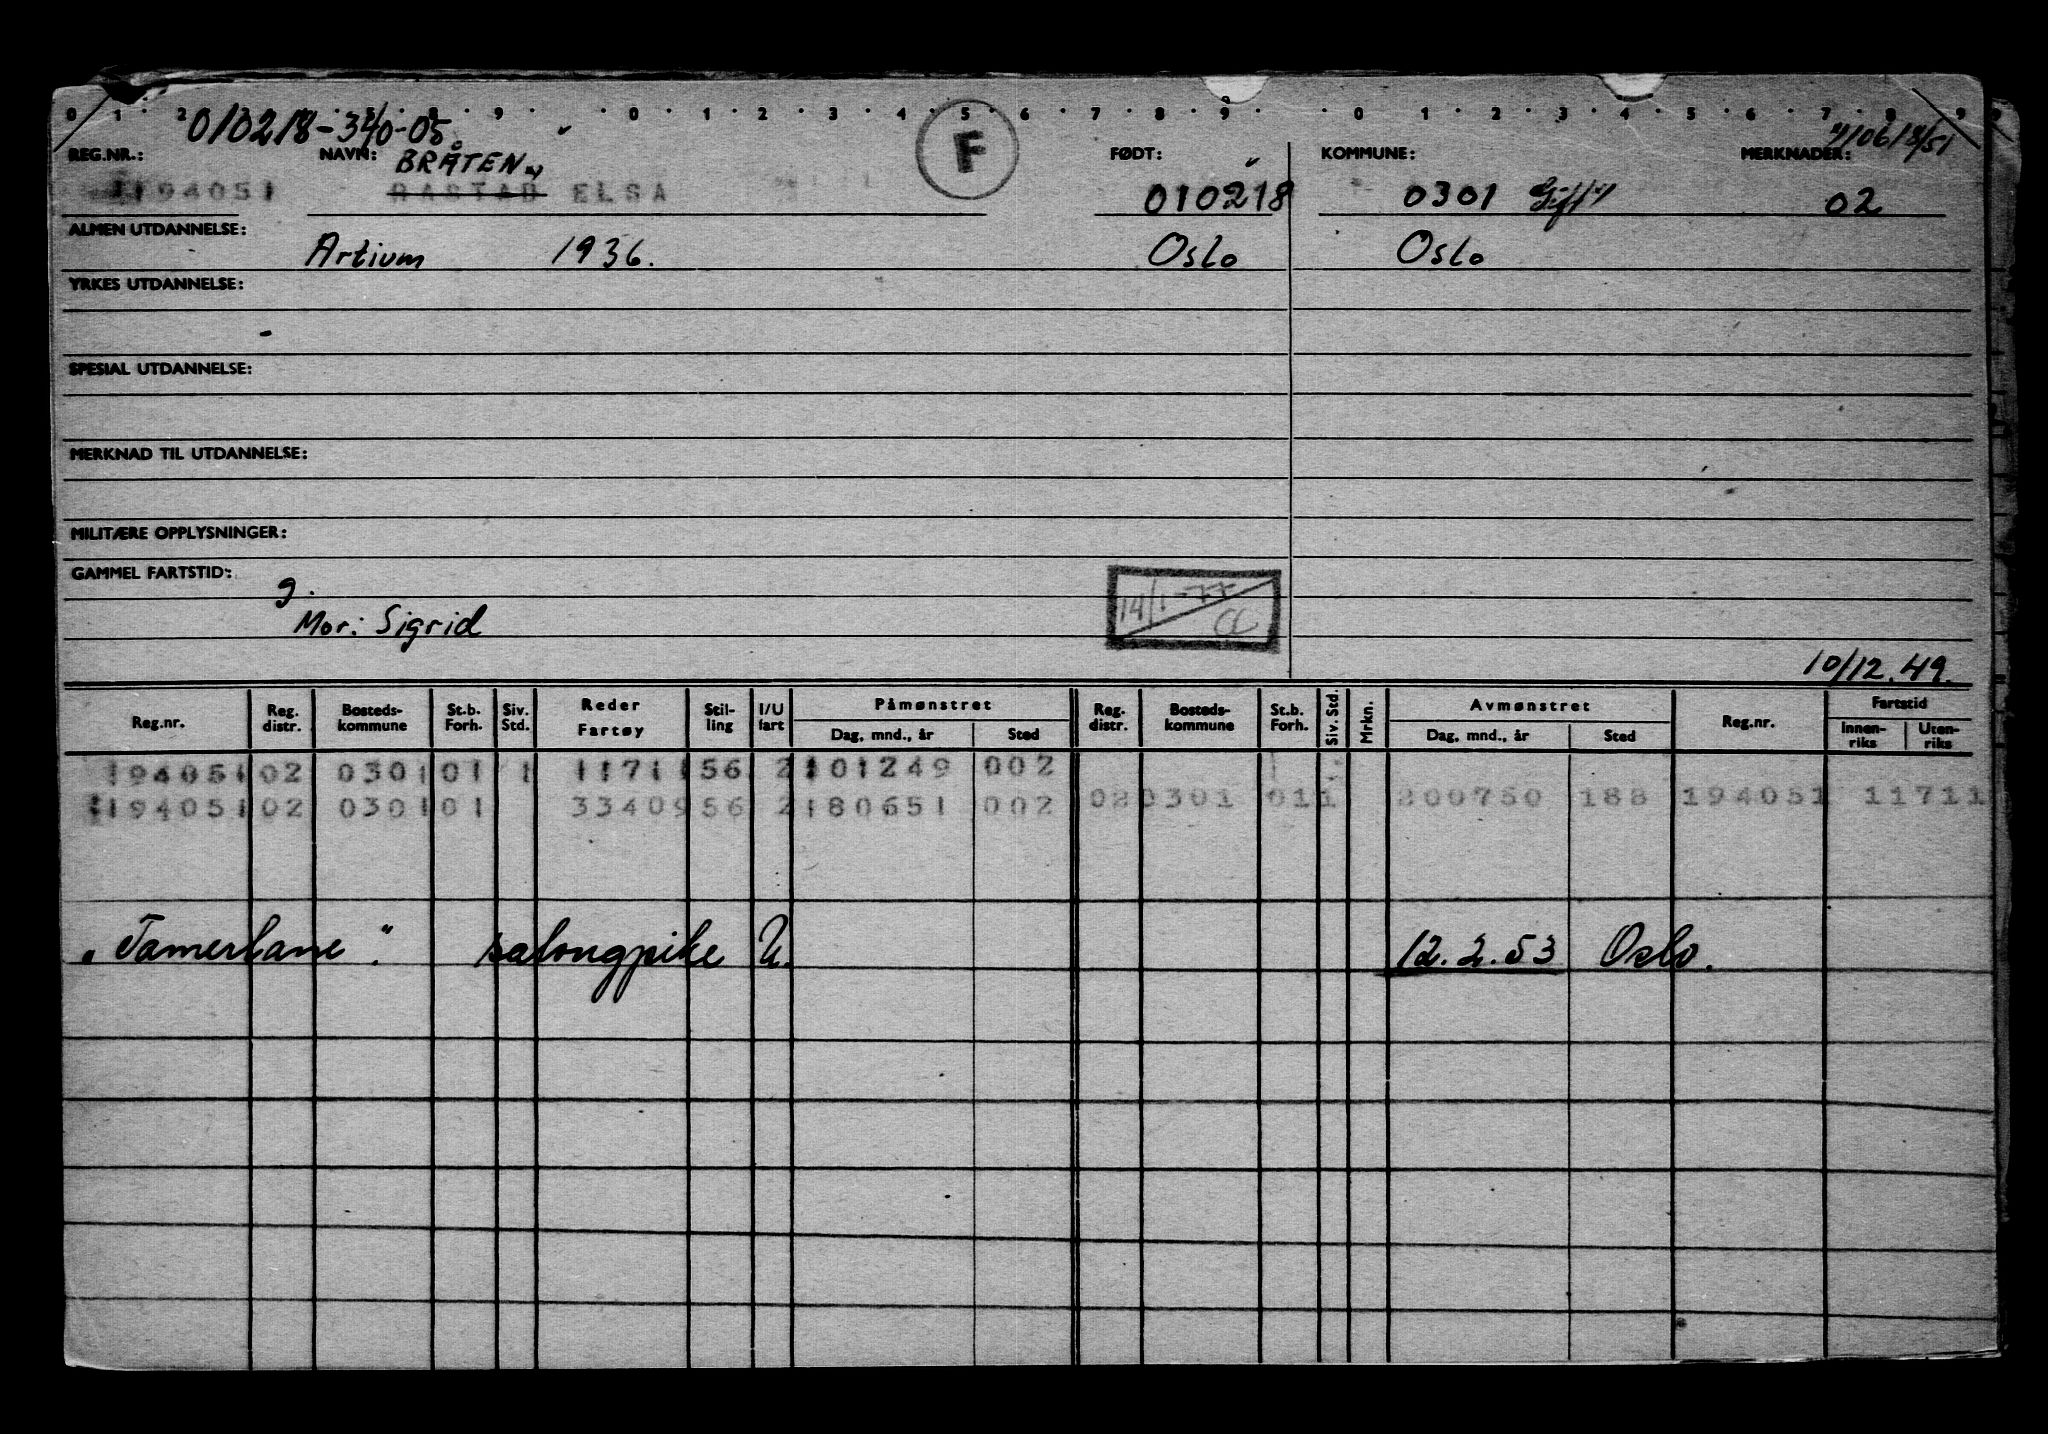 0 1 2 8 9 0 1 2 3 4 5 6 7 8 9 0 1 2 3 4 5 6 7 8 9
010218-340-05
F
REG.NR.: NAVN: FØDT: KOMMUNE: MERKNADER:
BRÅTEN
194051 RASTAD ELSA 010218 0301 Gift 02
ALMEN UTDANNELSE:
Artium 1936. Oslo Oslo
YRKES UTDANNELSE:
-
SPESIAL UTDANNELSE:
MERKNAD TIL UTDANNELSE:
MILITÆRE OPPLYSNINGER:
GAMMEL FARTSTID:
g.
14/1-77
Mor: Sigrid
10/12.49.
Reg.nr. Reg. distr. Bosteds- kommune St.b. Forh. Siv. Std. Reder Fartøy Stil- ling I/U fart Påmønstret Dag, mnd., år Sted Reg. distr. Bosteds- kommune St.b. Forh. Siv. Std. Mrkn. Avmønstret Dag, mnd., år Sted Reg.nr. Fartstid Innen- riks Uten- riks
194051 02 0301 01 1 11711 56 2 101249 002
194051 02 0301 01 33409 56 2 180651 002 02 0301 01 1 200750 188 194051 11711
"Tamerlane". salongpike U. 12.2.53 Oslo.